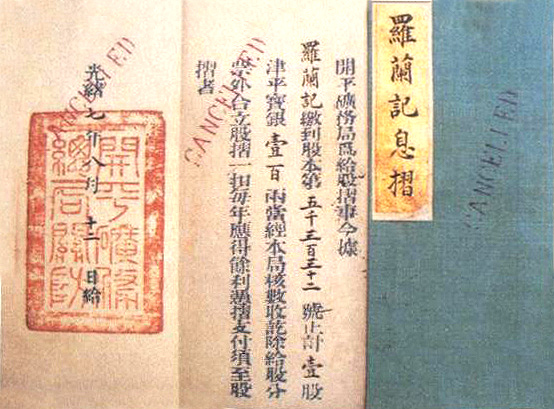 羅蘭記息摺
CANCELLED
開平礦務局爲給股摺事今據
羅蘭記繳到股本第五千三百三十二號止計壹股
津平寶銀壹百兩當經本局核數收訖除給股分
票外合立股摺一扣每年應得餘利憑摺支付須至股
摺者
CANCELLED
光緒七年八月十二日給
CANCELLED
開平礦務總局關防